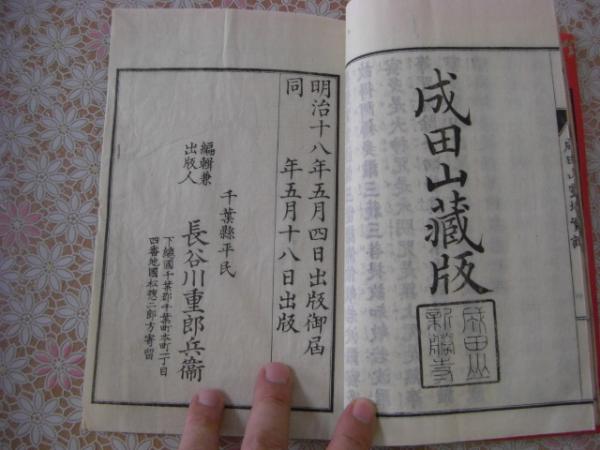 成田山藏版
成田山
新勝寺
明治十八年五月四日出版御届
同　　年五月十八日出版
千葉縣平民
編輯兼
出版人
長谷川重郎兵衞
下總國千葉郡千葉町本町一丁目
四番地國松徳二郎方寄留